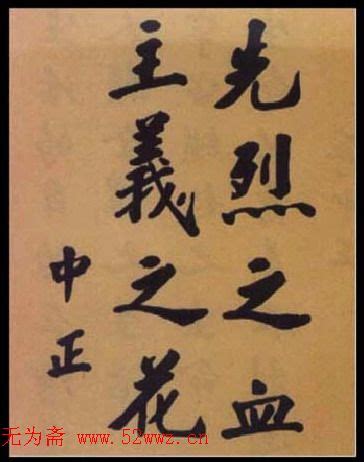 先烈之血
主義之花
中正
无为斋 www.52wwz.cn